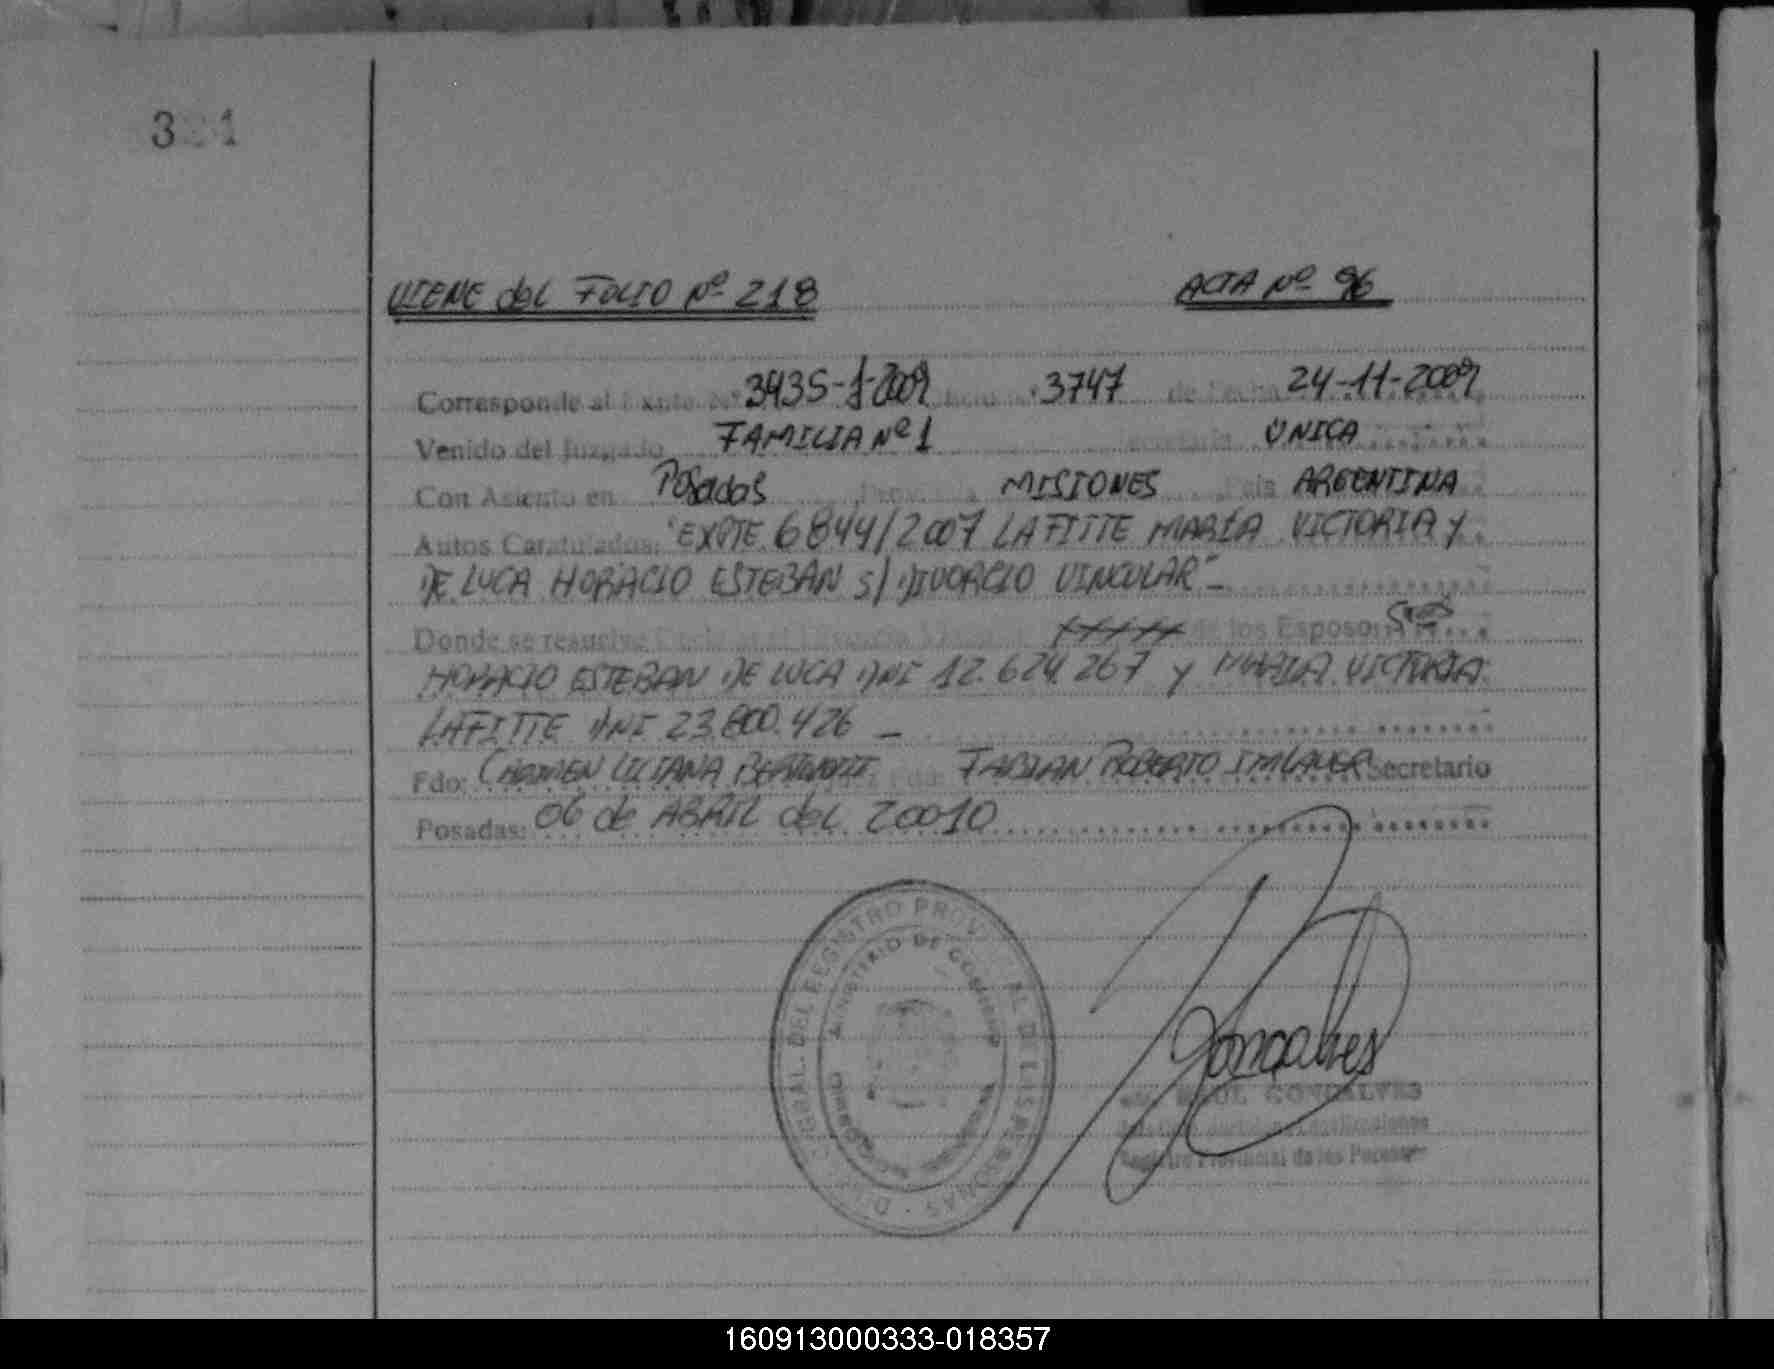 VIENE del FOLIO Nº 218 ACTA Nº 96
Corresponde al Expte. Nº 3435-J-2009 3747 de Fecha 24-11-2009
Venido del Juzgado FAMILIA Nº 1 Secretaria ÚNICA
Con Asiento en Posadas Provincia MISIONES País ARGENTINA
Autos Caratulados: "EXPTE 6844/2007 LAFITTE MARÍA VICTORIA y
DE LUCA HORACIO ESTEBAN S/ DIVORCIO VINCULAR" -
Donde se resuelve de los Esposos
HORACIO ESTEBAN DE LUCA DNI 12.624.267 y MARIA VICTORIA
LAFITTE DNI 23.800.426 -
Fdo: CARMEN LILIANA FABIAN ROBERTO Secretario
Posadas: 06 de ABRIL del 20010
DIREC. GRAL. DEL REGISTRO PROVINCIAL DE LAS PERSONAS
MINISTERIO DE GOBIERNO
Goncalves
RAUL GONCALVES
Registro Provincial de las Personas
160913000333-018357